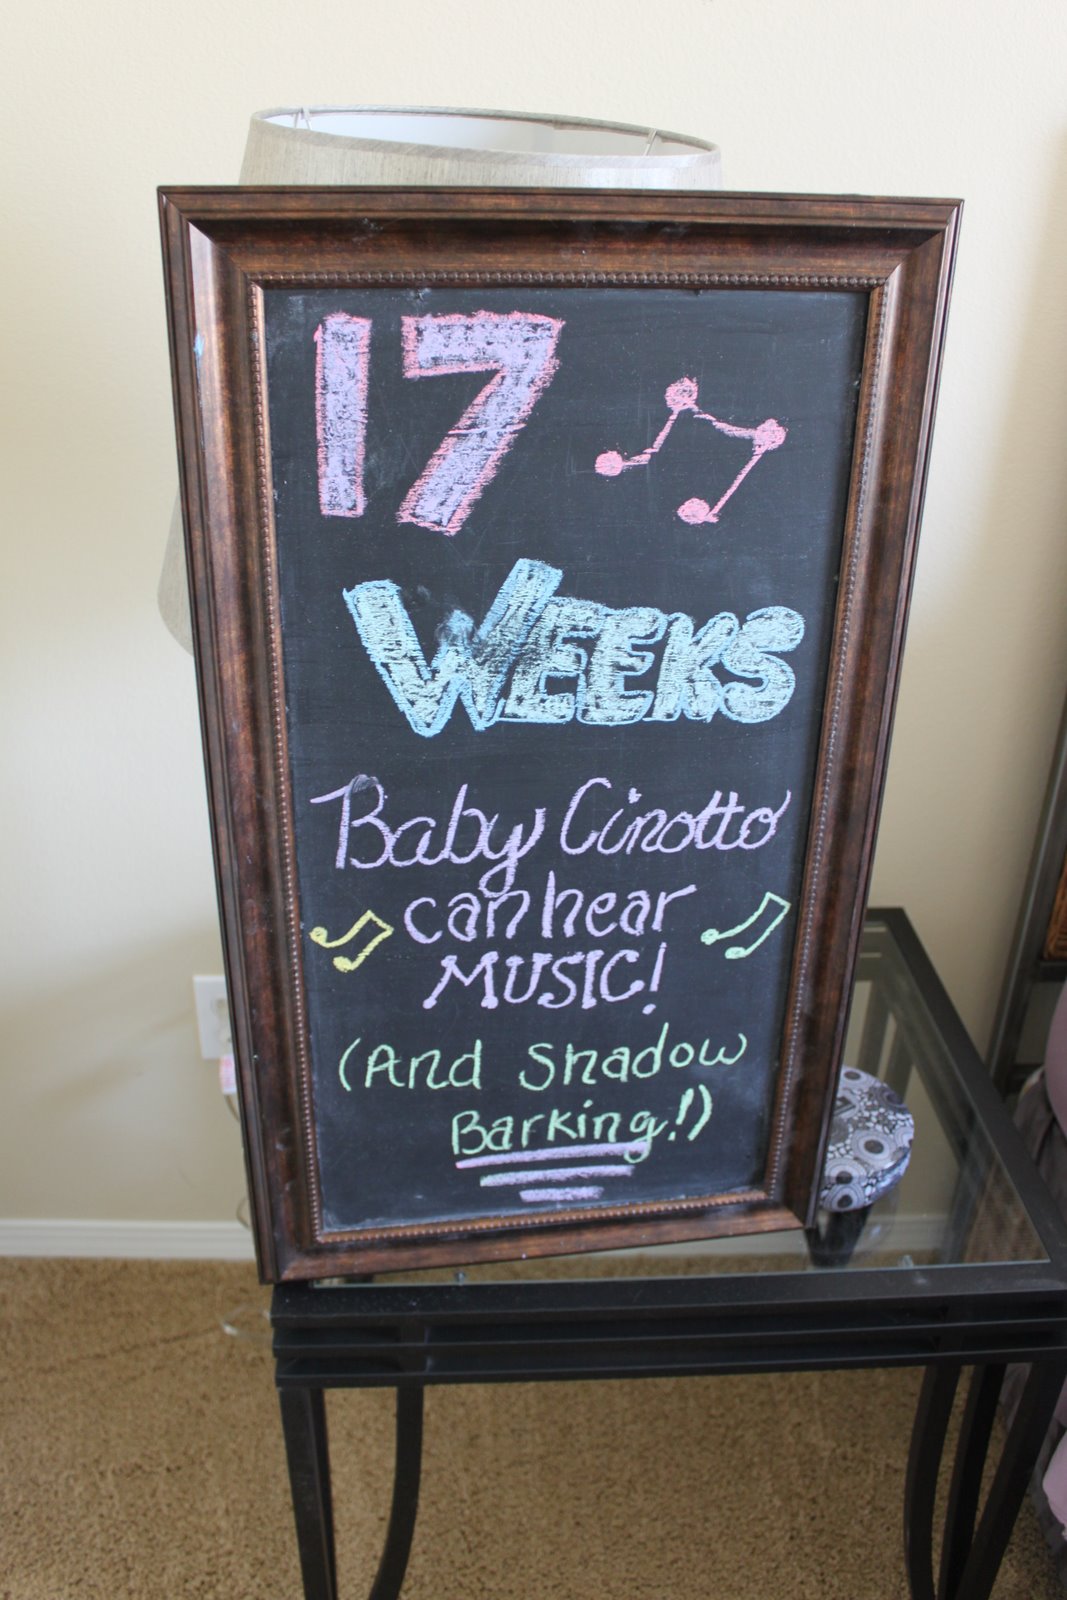 17
WEEKS
Baby Cinotto
can hear
MUSIC!
(And Shadow
Barking!)